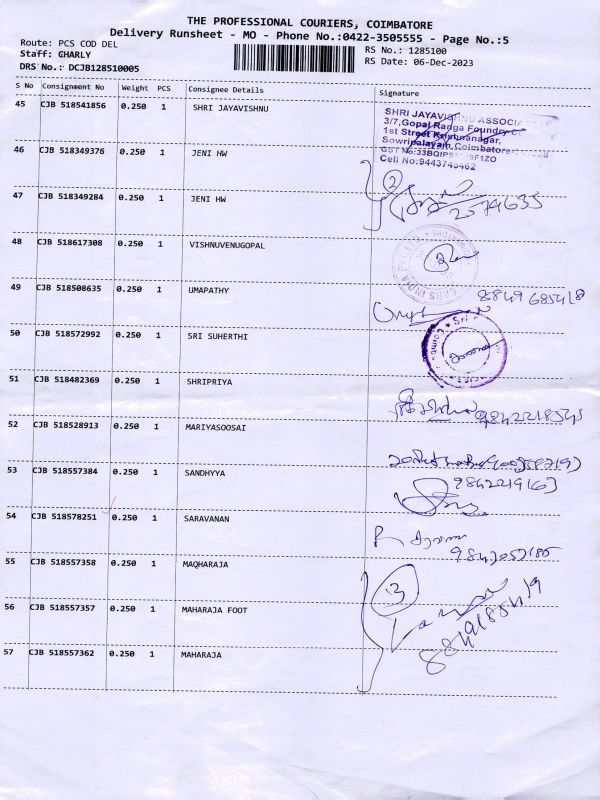 THE PROFESSIONAL COURIERS, COIMBATORE
Delivery Runsheet - MO - Phone No.:0422-3505555 - Page No.:5
Route: PCS COD DEL
RS No.: 1285100
Staff: GHARLY
RS Date: 06-Dec-2023
DRS No.: DCJB128510005
S No Consignment No Weight PCS Consignee Details Signature
45 CJB 518541856 0.250 1 SHRI JAYAVISHNU
SHRI JAYAVISHNU ASSOCIA
3/7,Gopal Ranga Foundry
1st Street Krishnanagar,
Sowripalayam,Coimbatore
GST No:33BQIPS
Cell No:9443745462
46 CJB 518349376 0.250 1 JENI HW
2
47 CJB 518349284 0.250 1 JENI HW
2574635
48 CJB 518617308 0.250 1 VISHNUVENUGOPAL
49 CJB 518508635 0.250 1 UMAPATHY
50 CJB 518572992 0.250 1 SRI SUHERTHI
51 CJB 518482369 0.250 1 SHRIPRIYA
52 CJB 518528913 0.250 1 MARIYASOOSAI
53 CJB 518557384 0.250 1 SANDHYYA
54 CJB 518578251 0.250 1 SARAVANAN
55 CJB 518557358 0.250 1 MAQHARAJA
3
56 CJB 518557357 0.250 1 MAHARAJA FOOT
57 CJB 518557362 0.250 1 MAHARAJA